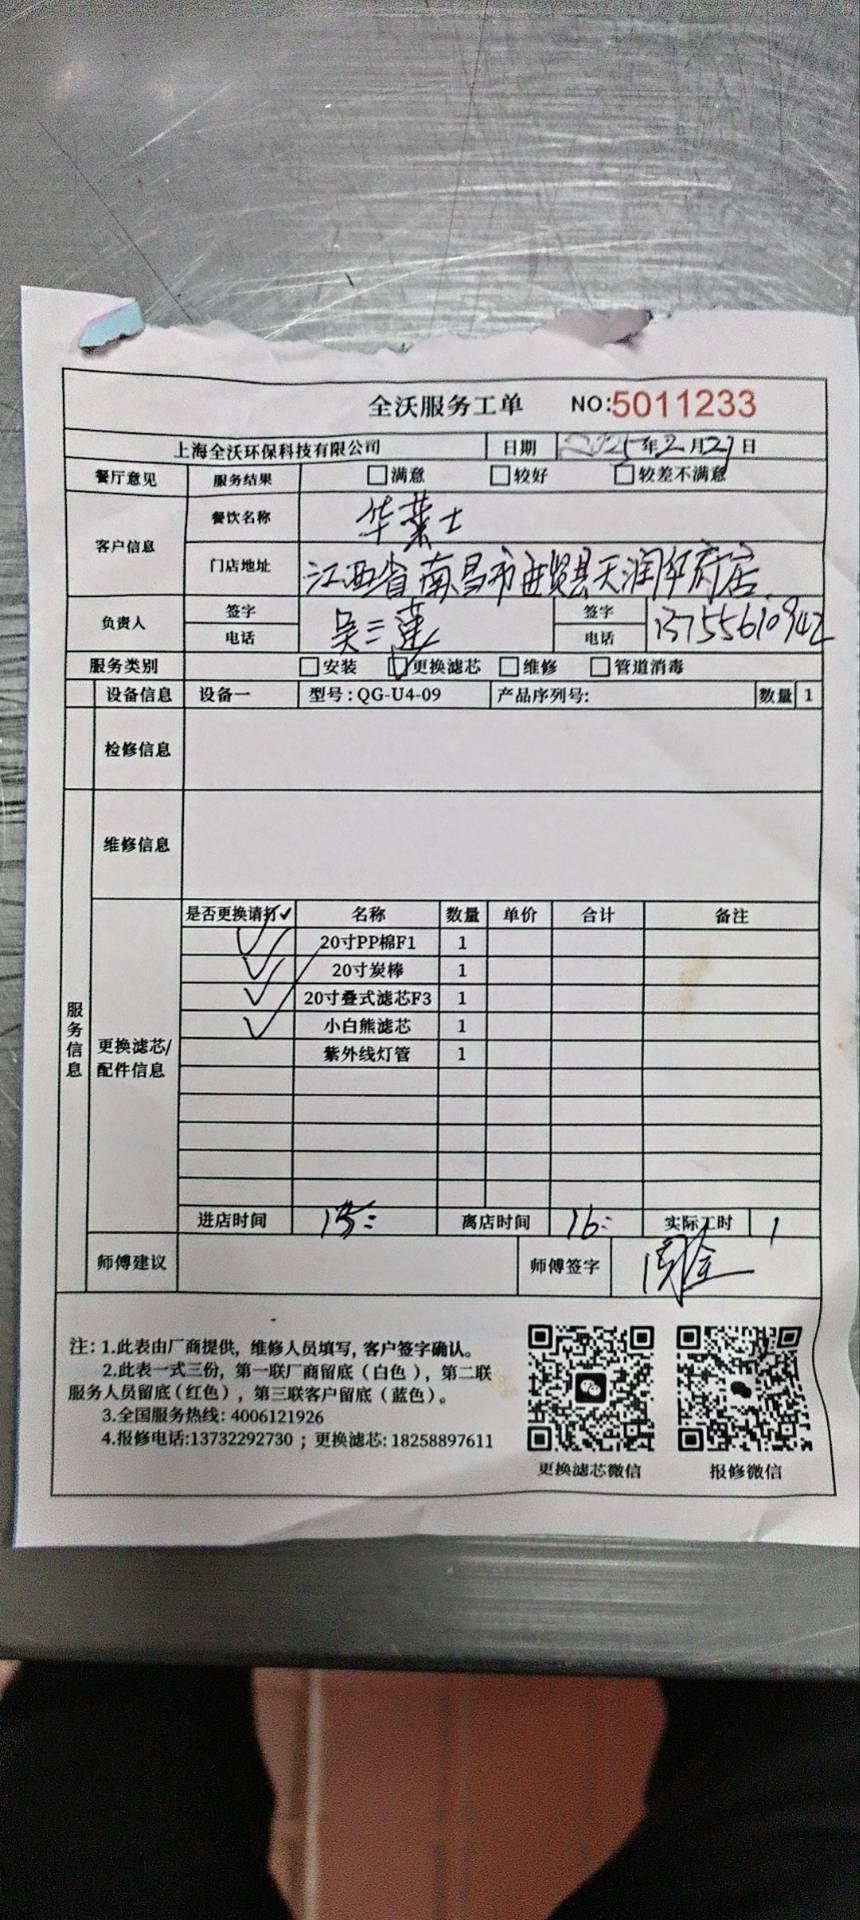 全沃服务工单 NO:5011233
上海全沃环保科技有限公司 日期 2025年2月27日
餐厅意见 服务结果 满意 较好 较差不满意
客户信息 餐饮名称 华莱士
门店地址 江西省南昌市进贤县天润华府店
负责人 签字 吴三莲 签字 13755610942
电话 电话
服务类别 安装 更换滤芯 维修 管道消毒
设备信息 设备一 型号:QG-U4-09 产品序列号: 数量 1
检修信息
维修信息
服务信息
更换滤芯/配件信息
是否更换请打✓ 名称 数量 单价 合计 备注
✓ 20寸PP棉F1 1
✓ 20寸炭棒 1
✓ 20寸叠式滤芯F3 1
✓ 小白熊滤芯 1
紫外线灯管 1
进店时间 15: 离店时间 16: 实际工时 1
师傅建议 师傅签字
注: 1.此表由厂商提供, 维修人员填写, 客户签字确认。
2.此表一式三份, 第一联厂商留底(白色), 第二联
服务人员留底(红色), 第三联客户留底(蓝色)。
3.全国服务热线: 4006121926
4.报修电话:13732292730 ; 更换滤芯: 18258897611
更换滤芯微信 报修微信